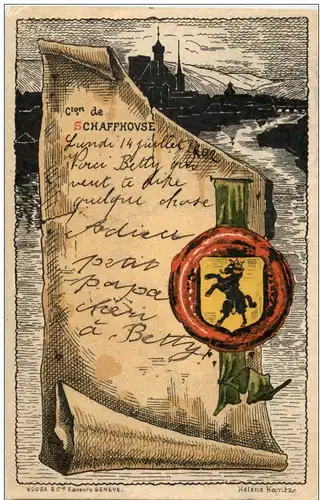 Cton de
SCHAFFHOVSE
Lundi 14 juillet
Voici Betty qui
veut te dire
quelque chose
Adieu
petit
papa
chéri
à Betty
VOUGA & Cie Editeurs GENÈVE.
Hélène Hantz